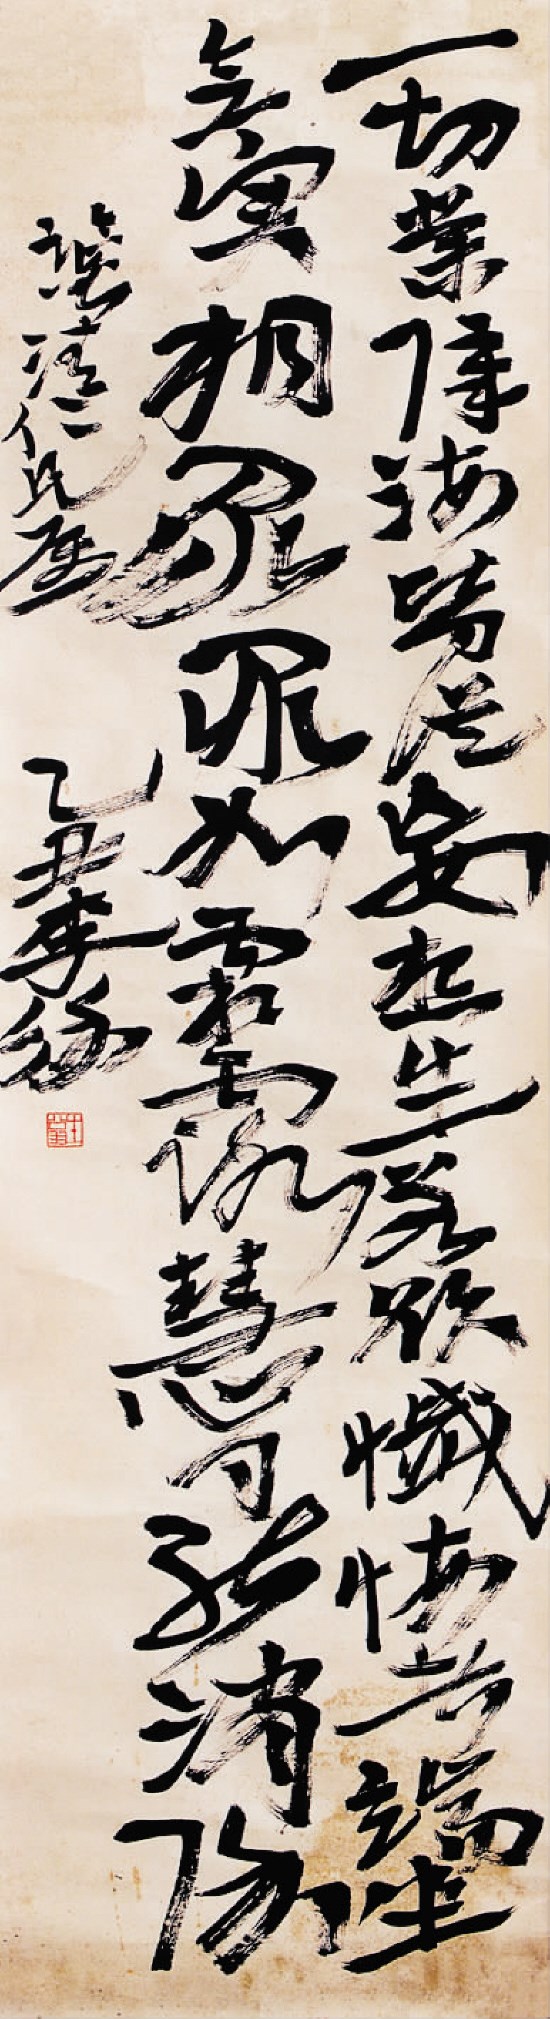 一切業障海皆從妄想生若欲懺悔者端坐
念實相眾罪如霜露慧日能消除
清仁兄屬
乙丑